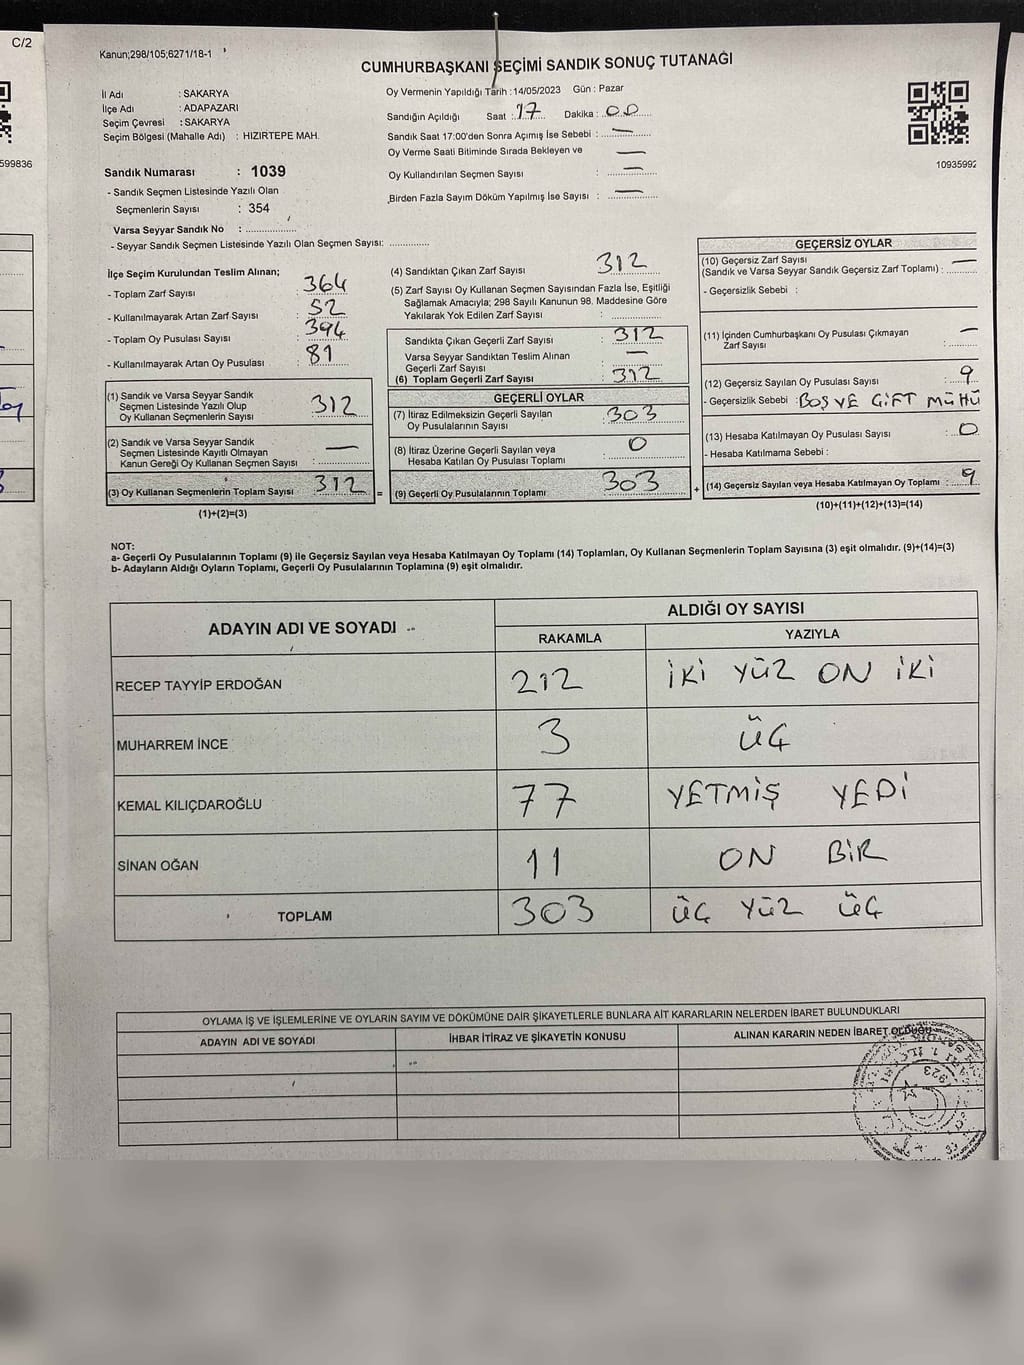 C/2
599836
Kanun;298/105;6271/18-1
CUMHURBAŞKANI SEÇİMİ SANDIK SONUÇ TUTANAĞI
İl Adı : SAKARYA
İlçe Adı : ADAPAZARI
Seçim Çevresi : SAKARYA
Seçim Bölgesi (Mahalle Adı) : HIZIRTEPE MAH.
Oy Vermenin Yapıldığı Tarih :14/05/2023 Gün : Pazar
Sandığın Açıldığı Saat : 17 Dakika : 00
Sandık Saat 17:00'den Sonra Açımış İse Sebebi : —
Oy Verme Saati Bitiminde Sırada Bekleyen ve —
Oy Kullandırılan Seçmen Sayısı : —
Birden Fazla Sayım Döküm Yapılmış İse Sayısı : —
1093599
Sandık Numarası : 1039
- Sandık Seçmen Listesinde Yazılı Olan
Seçmenlerin Sayısı : 354
Varsa Seyyar Sandık No : ................
- Seyyar Sandık Seçmen Listesinde Yazılı Olan Seçmen Sayısı: .............
İlçe Seçim Kurulundan Teslim Alınan;
- Toplam Zarf Sayısı : 364
- Kullanılmayarak Artan Zarf Sayısı : 52
- Toplam Oy Pusulası Sayısı : 394
- Kullanılmayarak Artan Oy Pusulası : 81
(1) Sandık ve Varsa Seyyar Sandık
Seçmen Listesinde Yazılı Olup
Oy Kullanan Seçmenlerin Sayısı : 312
(2) Sandık ve Varsa Seyyar Sandık
Seçmen Listesinde Kayıtlı Olmayan
Kanun Gereği Oy Kullanan Seçmen Sayısı : —
(3) Oy Kullanan Seçmenlerin Toplam Sayısı : 312 =
(1)+(2)=(3)
(4) Sandıktan Çıkan Zarf Sayısı : 312
(5) Zarf Sayısı Oy Kullanan Seçmen Sayısından Fazla İse, Eşitliği
Sağlamak Amacıyla; 298 Sayılı Kanunun 98. Maddesine Göre
Yakılarak Yok Edilen Zarf Sayısı : ................
Sandıkta Çıkan Geçerli Zarf Sayısı : 312
Varsa Seyyar Sandıktan Teslim Alınan
Geçerli Zarf Sayısı : —
(6) Toplam Geçerli Zarf Sayısı : 312
GEÇERLİ OYLAR
(7) İtiraz Edilmeksizin Geçerli Sayılan
Oy Pusulalarının Sayısı : 303
(8) İtiraz Üzerine Geçerli Sayılan veya
Hesaba Katılan Oy Pusulası Toplamı : 0
(9) Geçerli Oy Pusulalarının Toplamı : 303 +
GEÇERSİZ OYLAR
(10) Geçersiz Zarf Sayısı
(Sandık ve Varsa Seyyar Sandık Geçersiz Zarf Toplamı) : —
- Geçersizlik Sebebi :
(11) İçinden Cumhurbaşkanı Oy Pusulası Çıkmayan
Zarf Sayısı : —
(12) Geçersiz Sayılan Oy Pusulası Sayısı : 9
- Geçersizlik Sebebi : BOŞ VE ÇİFT MÜHÜ
(13) Hesaba Katılmayan Oy Pusulası Sayısı : 0
- Hesaba Katılmama Sebebi :
(14) Geçersiz Sayılan veya Hesaba Katılmayan Oy Toplamı : 9
(10)+(11)+(12)+(13)=(14)
NOT:
a- Geçerli Oy Pusulalarının Toplamı (9) ile Geçersiz Sayılan veya Hesaba Katılmayan Oy Toplamı (14) Toplamları, Oy Kullanan Seçmenlerin Toplam Sayısına (3) eşit olmalıdır. (9)+(14)=(3)
b- Adayların Aldığı Oyların Toplamı, Geçerli Oy Pusulalarının Toplamına (9) eşit olmalıdır.
ADAYIN ADI VE SOYADI
ALDIĞI OY SAYISI
RAKAMLA YAZIYLA
RECEP TAYYİP ERDOĞAN 212 İKİ YÜZ ON İKİ
MUHARREM İNCE 3 ÜÇ
KEMAL KILIÇDAROĞLU 77 YETMİŞ YEDİ
SİNAN OĞAN 11 ON BİR
TOPLAM 303 ÜÇ YÜZ ÜÇ
OYLAMA İŞ VE İŞLEMLERİNE VE OYLARIN SAYIM VE DÖKÜMÜNE DAİR ŞİKAYETLERLE BUNLARA AİT KARARLARIN NELERDEN İBARET BULUNDUKLARI
ADAYIN ADI VE SOYADI İHBAR İTİRAZ VE ŞİKAYETİN KONUSU ALINAN KARARIN NEDEN İBARET OLDUĞU